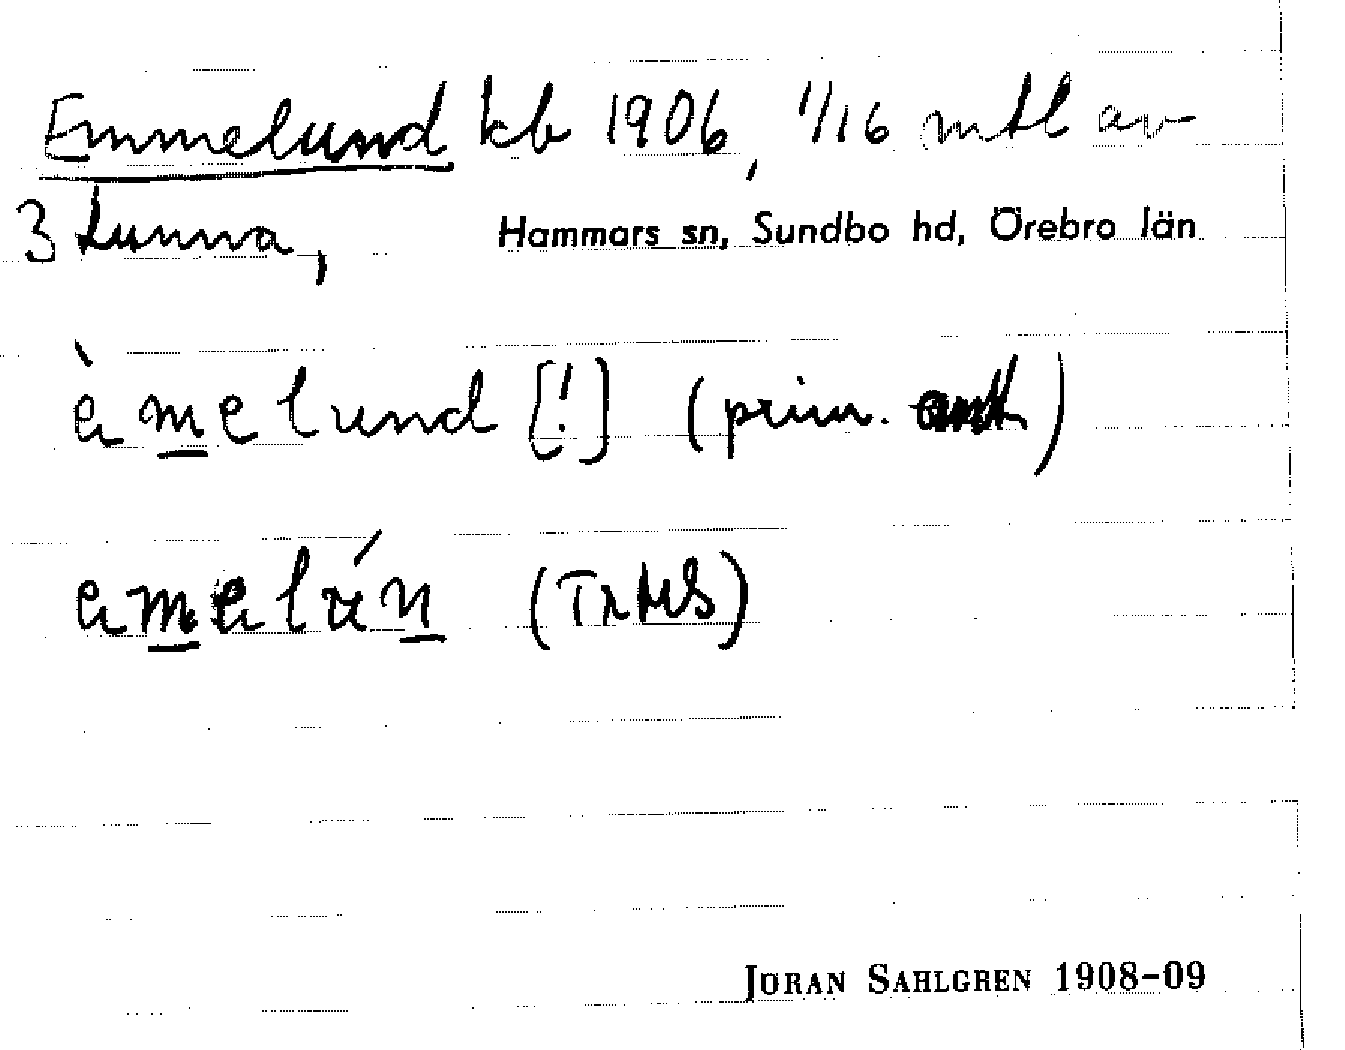 Emmelund kb 1906, 1/16 mtl av
3 Lunna, Hammars sn, Sundbo hd, Örebro län
èmelund [!] (prim. )
emelún (TrMS)
JÖRAN SAHLGREN 1908-09